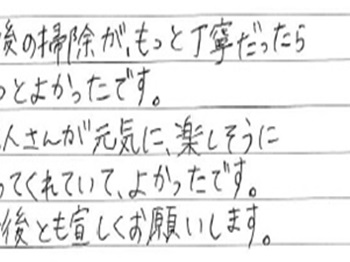 後の掃除が、もっと丁寧だったら
っとよかったです。
人さんが元気に、楽しそうに
ってくれていて、よかったです。
後とも宜しくお願いします。